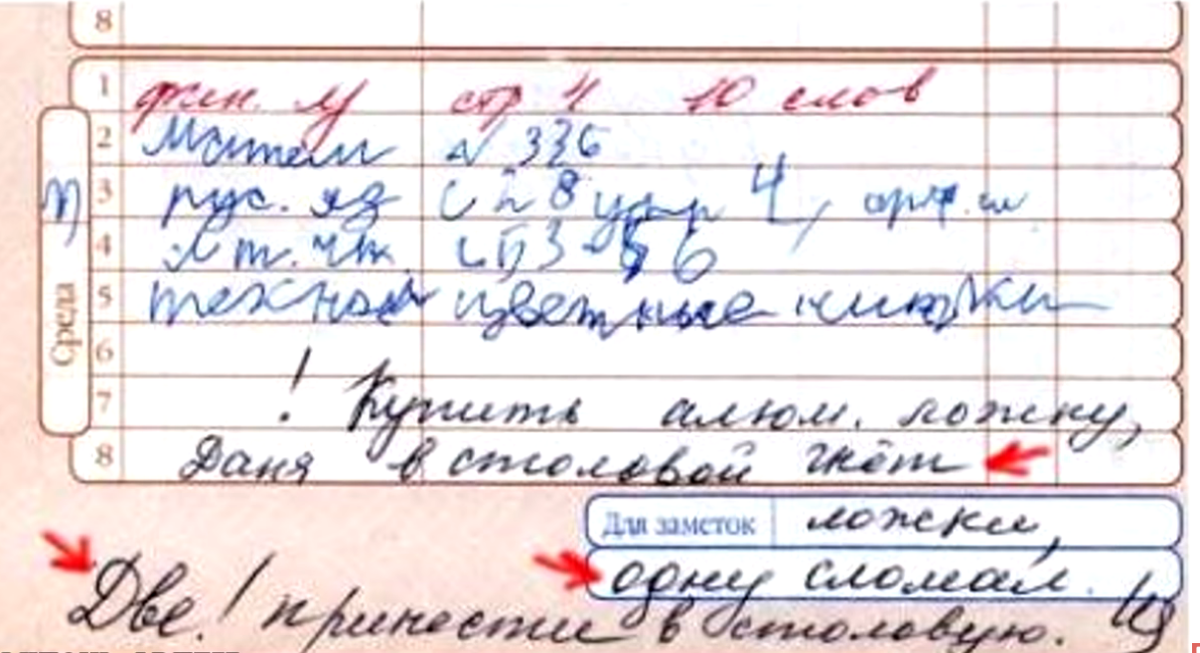 8
1 стр 4 10 слов
2 Матем № 336
3 рус. яз с 8 упр 4,
4 Лит. чт.
5 цветные нитки
6
7 ! Купить алюм. ложку,
8 Даня в столовой гнёт
Среда
Для заметок ложки,
одну сломал.
Две! принести в столовую.